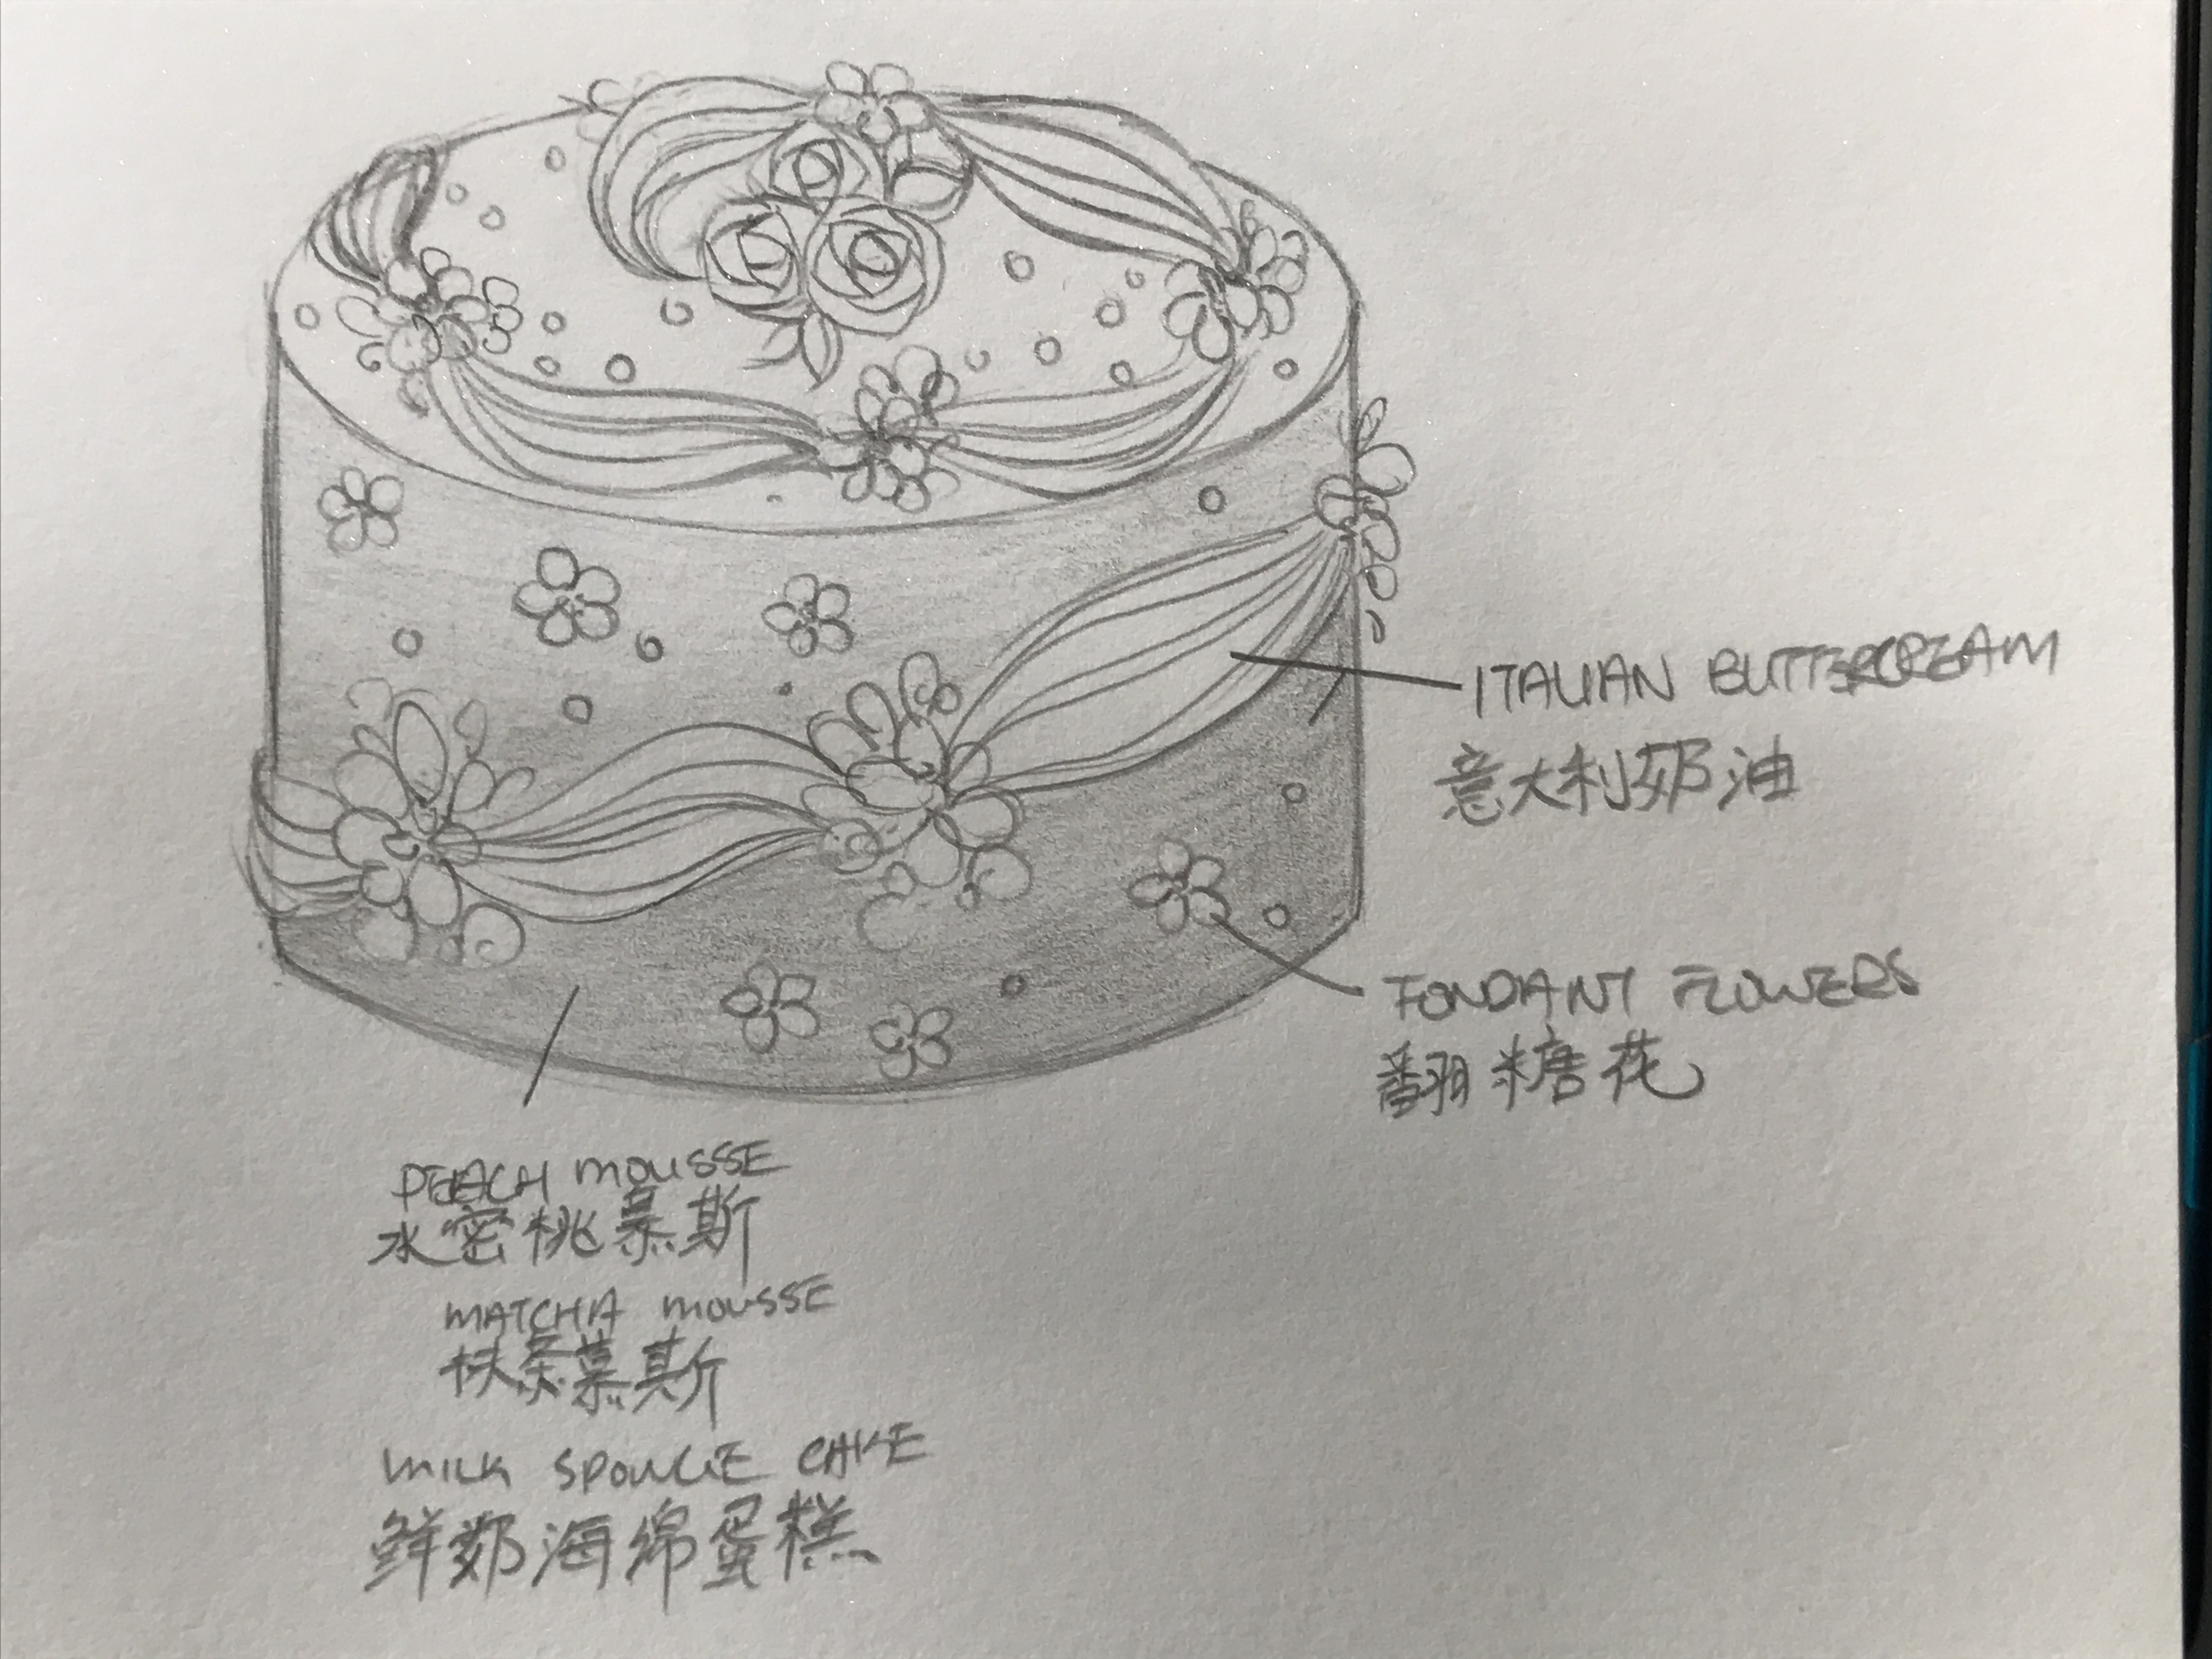 ITALIAN BUTTERCREAM
意大利奶油
FONDANT FLOWERS
翻糖花
PEACH MOUSSE
水密桃慕斯
MATCHA MOUSSE
抹茶慕斯
MILK SPONGE CAKE
鲜奶海绵蛋糕